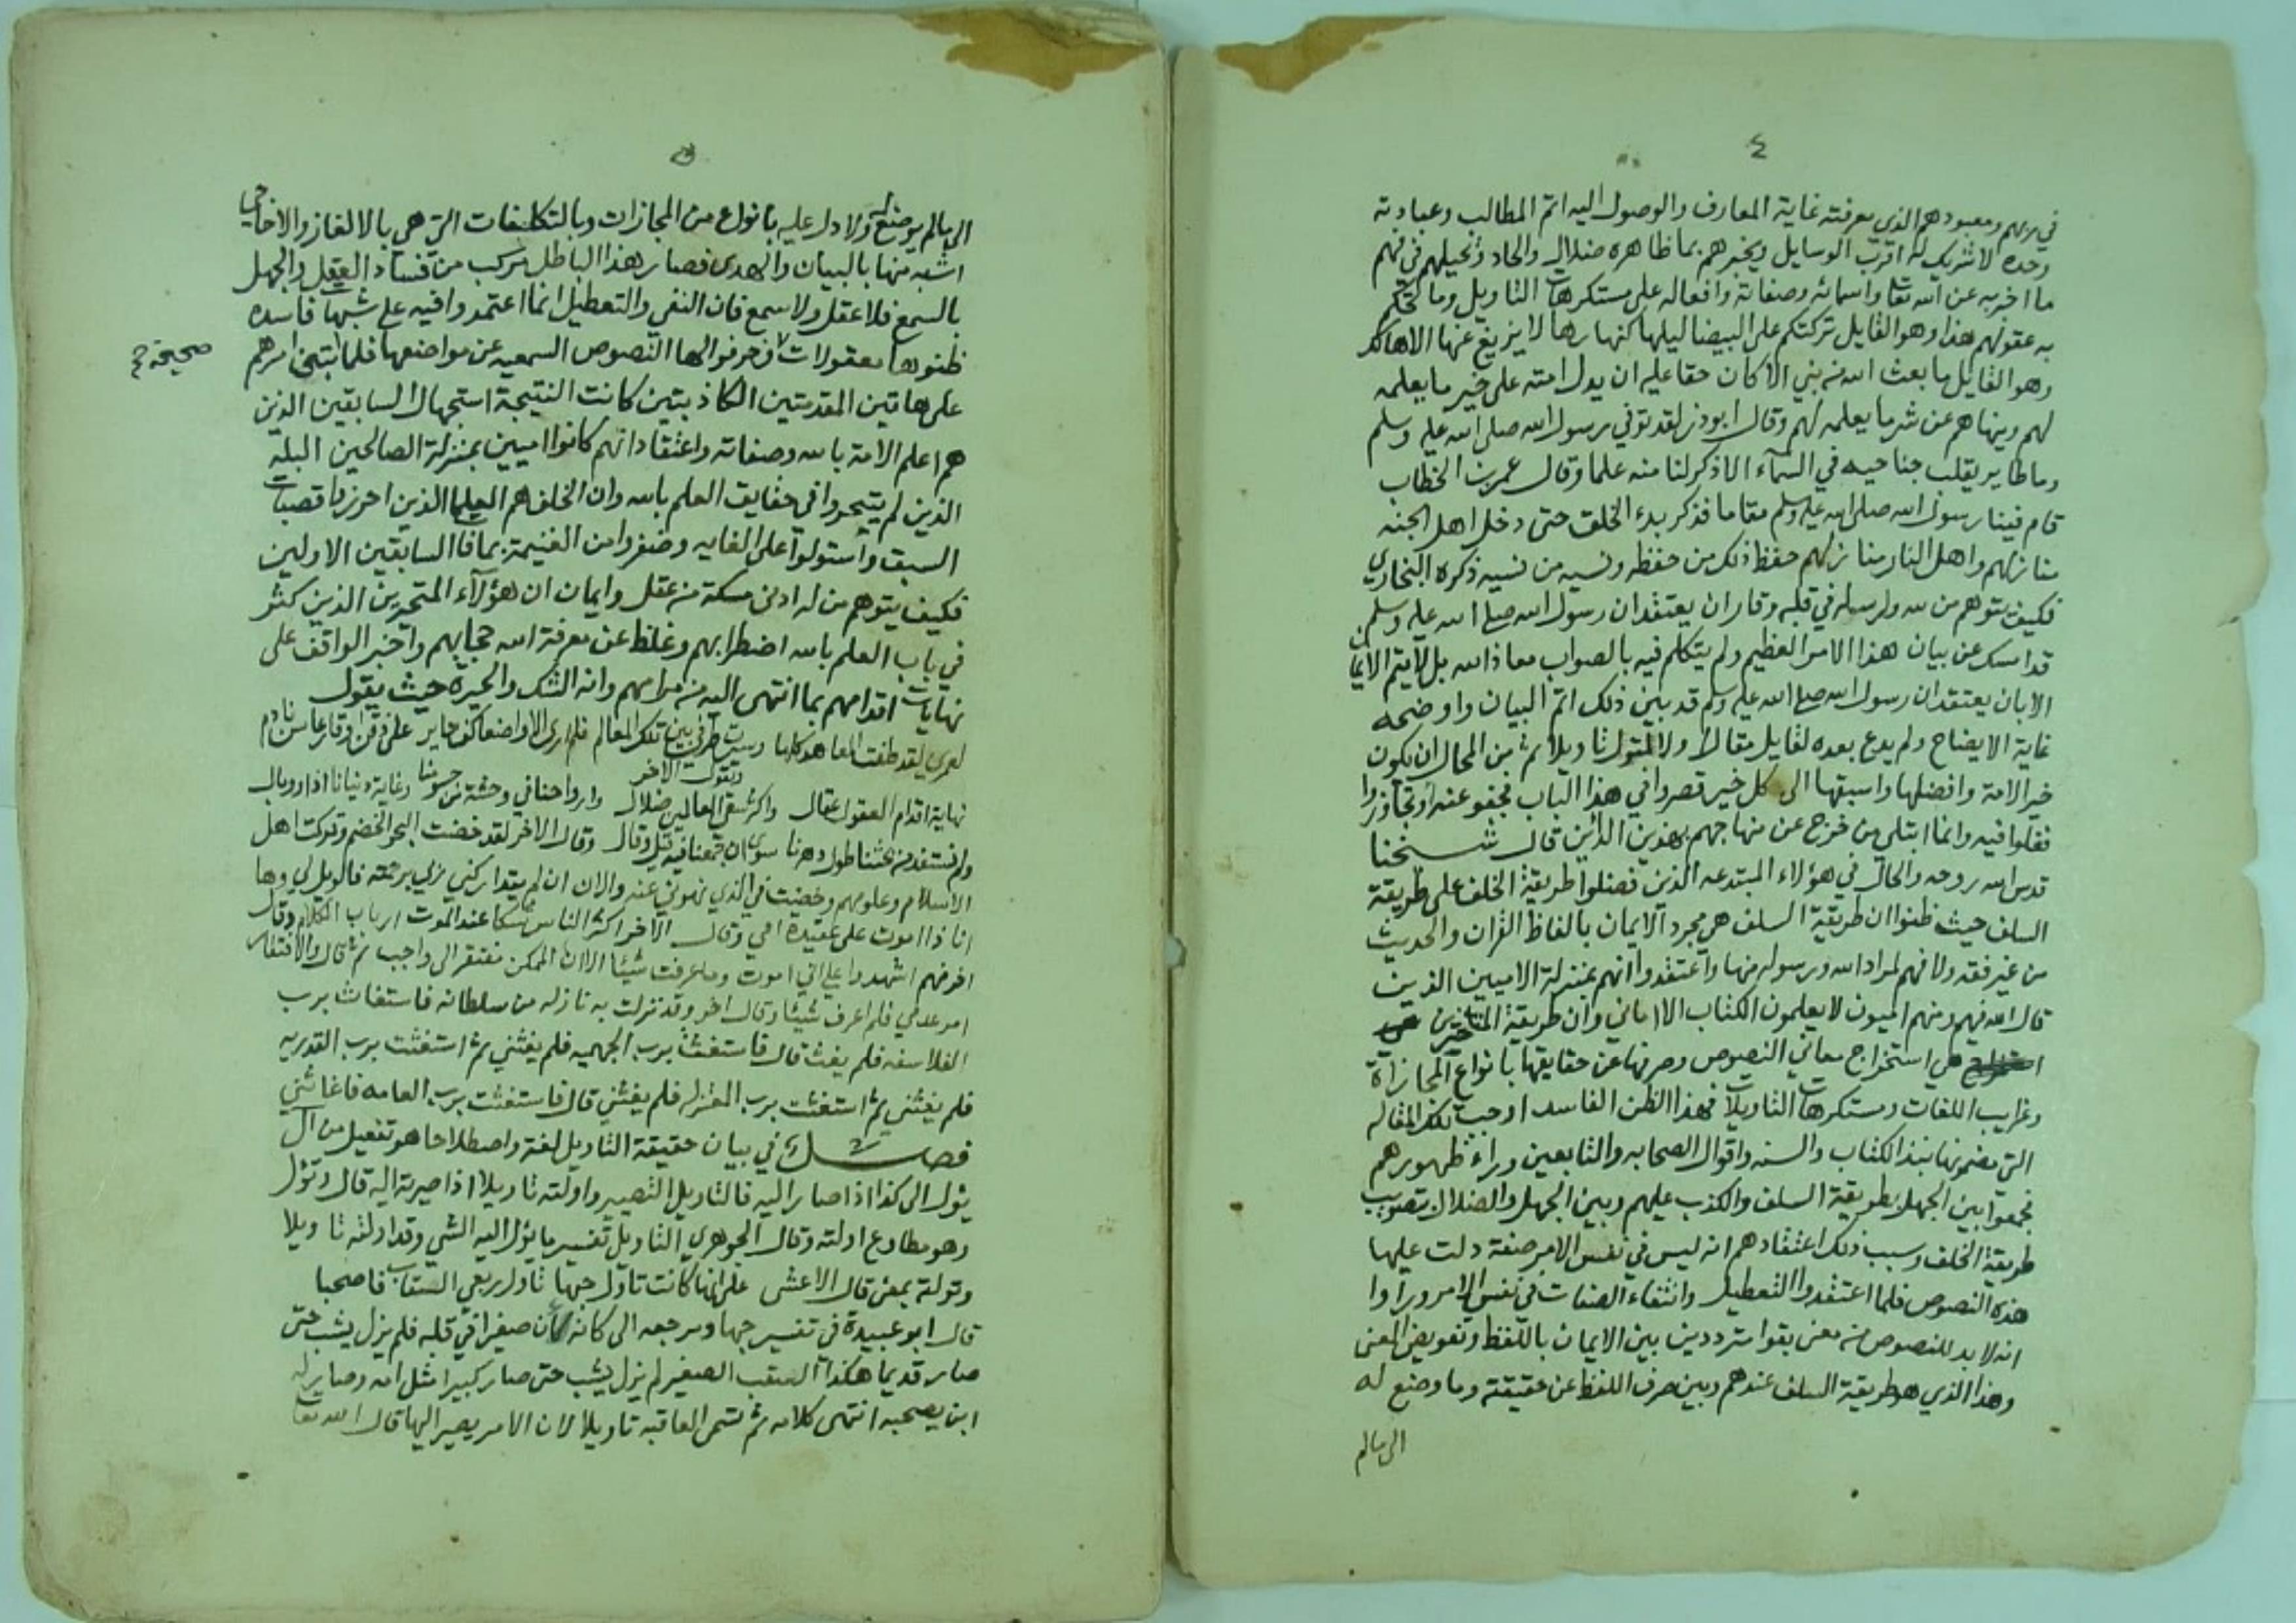 ٤
في ربهم ومعبودهم الذي معرفته غاية المعارف والوصول اليه اتم المطالب وعبادته
وحده لا شريك له اقرب الوسايل ويخبرهم بما ظاهره ضلال والحاد ويحيلهم في فهم
ما اخبر به عن الله تعا واسمائه وصفاته وافعاله على مستكرهات التاويل وما تحكم
به عقولهم هذا وهو القايل تركتكم على البيضا ليلها كنهارها لا يزيغ عنها الا هالك
وهو القايل ما بعث الله من نبي الا كان حقا عليه ان يدل امته على خير ما يعلمه
لهم وينهاهم عن شر ما يعلمه لهم وقال ابو ذر لقد توفي رسول الله صلى الله عليه وسلم
وما طاير يقلب جناحيه في السمآء الا ذكر لنا منه علما وقال عمر بن الخطاب
قام فينا رسول الله صلى الله عليه وسلم مقاما فذكر بدء الخلق حتى دخل اهل الجنه
منازلهم واهل النار منازلهم حفظ ذلك من حفظه ونسيه من نسيه ذكره البخاري
فكيف يتوهم من لله ولرسوله في قلبه وقار ان يعتقد ان رسول الله صلى الله عليه وسلم
قد امسك عن بيان هذا الامر العظيم ولم يتكلم فيه بالصواب معاذ الله بل لا يتم الايمان
الا بان يعتقد ان رسول الله صلى الله عليه وسلم قد بين ذلك اتم البيان واوضحه
غاية الايضاح ولم يدع بعده لقايل مقالا ولا لمتول تاويلا ثم من المحال ان يكون
خير الامة وافضلها واسبقها الى كل خير قصروا في هذا الباب فجفو عنه او تجاوزوا
فغلوا فيه وانما ابتلي من خرج عن منهاجهم بهذين الدآئين قال شيخنا
قدس الله روحه والحال في هؤلاء المبتدعه الذين فضلوا طريقة الخلف على طريقة
السلف حيث ظنوا ان طريقة السلف هي مجرد الايمان بالفاظ القران والحديث
من غير فقه ولا فهم لمراد الله ورسوله منها واعتقدوا انهم بمنزلة الاميين الذين
قال الله فيهم ومنهم اميون لا يعلمون الكتاب الا اماني وان طريقة المتاخرين
هي استخراج معاني النصوص وصرفها عن حقايقها بانواع المجازاة
وغرايب اللغات ومستكرهات التاويلات فهذا الظن الفاسد اوجب تلك المقاله
التي مضمونها نبذ الكتاب والسنه واقوال الصحابه والتابعين وراء ظهورهم
فجمعوا بين الجهل بطريقة السلف والكذب عليهم وبين الجهل والضلال بتصويب
طريقة الخلف وسبب ذلك اعتقادهم انه ليس في نفس الامر صفة دلت عليها
هذه النصوص فلما اعتقدوا التعطيل وانتفاء الصفات في نفس الامر وراوا
انه لا بد للنصوص من معنى بقوا مترددين بين الايمان باللفظ وتفويض المعنى
وهذا الذي هو طريقة السلف عندهم وبين صرف اللفظ عن حقيقته وما وضع له
الى ما لم
٥
الى ما لم يوضع له ولا دل عليه بانواع من المجازات وبالتكلفات التي هي بالالغاز والاحاجي
اشبه منها بالبيان والهدى فصار هذا الباطل مركب من فساد العقل والجهل
بالسمع فلا عقل ولا سمع فان النفي والتعطيل انما اعتمدوا فيه على شبهات فاسده
ظنوها معقولات وحرفوا لها النصوص السمعيه عن مواضعها فلما ابتنى امرهم
صحيحة صح
على هاتين المقدمتين الكاذبتين كانت النتيجة استجهال السابقين الذين
هم اعلم الامة بالله وصفاته واعتقاد انهم كانوا اميين بمنزلة الصالحين البله
الذين لم يتبحروا في حقايق العلم بالله وان الخلف هم العلما الذين احرزوا قصبات
السبق واستولوا على الغايه وضفروا من الغنيمة بما فا السابقين الاولين
فكيف يتوهم من له ادنى مسكة من عقل وايمان ان هؤلآء المتحيرين الذين كثر
في باب العلم بالله اضطرابهم وغلظ عن معرفة الله حجابهم واخبر الواقف على
نهايات اقدامهم بما انتهى اليه من مرامهم وانه الشك والحيرة حيث يقول
لعمري لقد طفت المعاهد كلها وسيرت طرفي بين تلك المعالم فلم ارى الا واضعا كف حاير على ذقن او قارعا سن نادم
ويقول الاخر
نهاية اقدام العقول عقال واكثر سعي العالمين ضلال وارواحنا في وحشة من جسومنا وغاية دنيانا اذا ووبال
ولم نستفد من بحثنا طول دهرنا سوى ان جمعنا فيه قيل وقال وقال الاخر لقد خضت البحر الخضم وتركت اهل
الاسلام وعلومهم وخضت في الذي نهوني عنه والان ان لم يتداركني ربي برحمته فالويل لي وها
انا ذا اموت على عقيدة امي وقال الاخر اكثر الناس شكا عند الموت ارباب الكلام وقال
اخر منهم اشهدوا علي اني اموت وما عرفت شيئا الا ان الممكن مفتقر الى واجب ثم قال والافتقار
امر عدمي فلم اعرف شيئا وقال اخر وقد نزلت به نازله من سلطانه فاستغاث برب
الفلاسفه فلم يغث قال فاستغثت برب الجهميه فلم يغثني ثم استغثت برب القدريه
فلم يغثني ثم استغثت برب المعتزله فلم يغثني قال فاستغثت برب العامه فاغاثني
فصل في بيان حقيقة التاويل لغة واصطلاحا هو تفعيل من آل
يؤل الى كذا اذا صار اليه فالتاويل التصيير واولته تاويلا اذا صيرته اليه قال وتؤل
وهو مطاوع اولته وقال الجوهري التاويل تفسير ما يؤل اليه الشي وقد اولته تاويلا
وتولته بمعنى قال الاعشى على انها كانت تاول حبها تاول ربعي السقاب فاصحبا
قال ابو عبيدة في تفسير حبها ومرجعه الى كانه كان صغيرا في قلبه فلم يزل يشب حتى
صار قديما هكذا السقب الصغير لم يزل يشب حتى صار كبيرا مثل امه وصار له
ابن يصحبه انتهى كلامه ثم تسمى العاقبه تاويلا لان الامر يصير اليها قال الله تعا